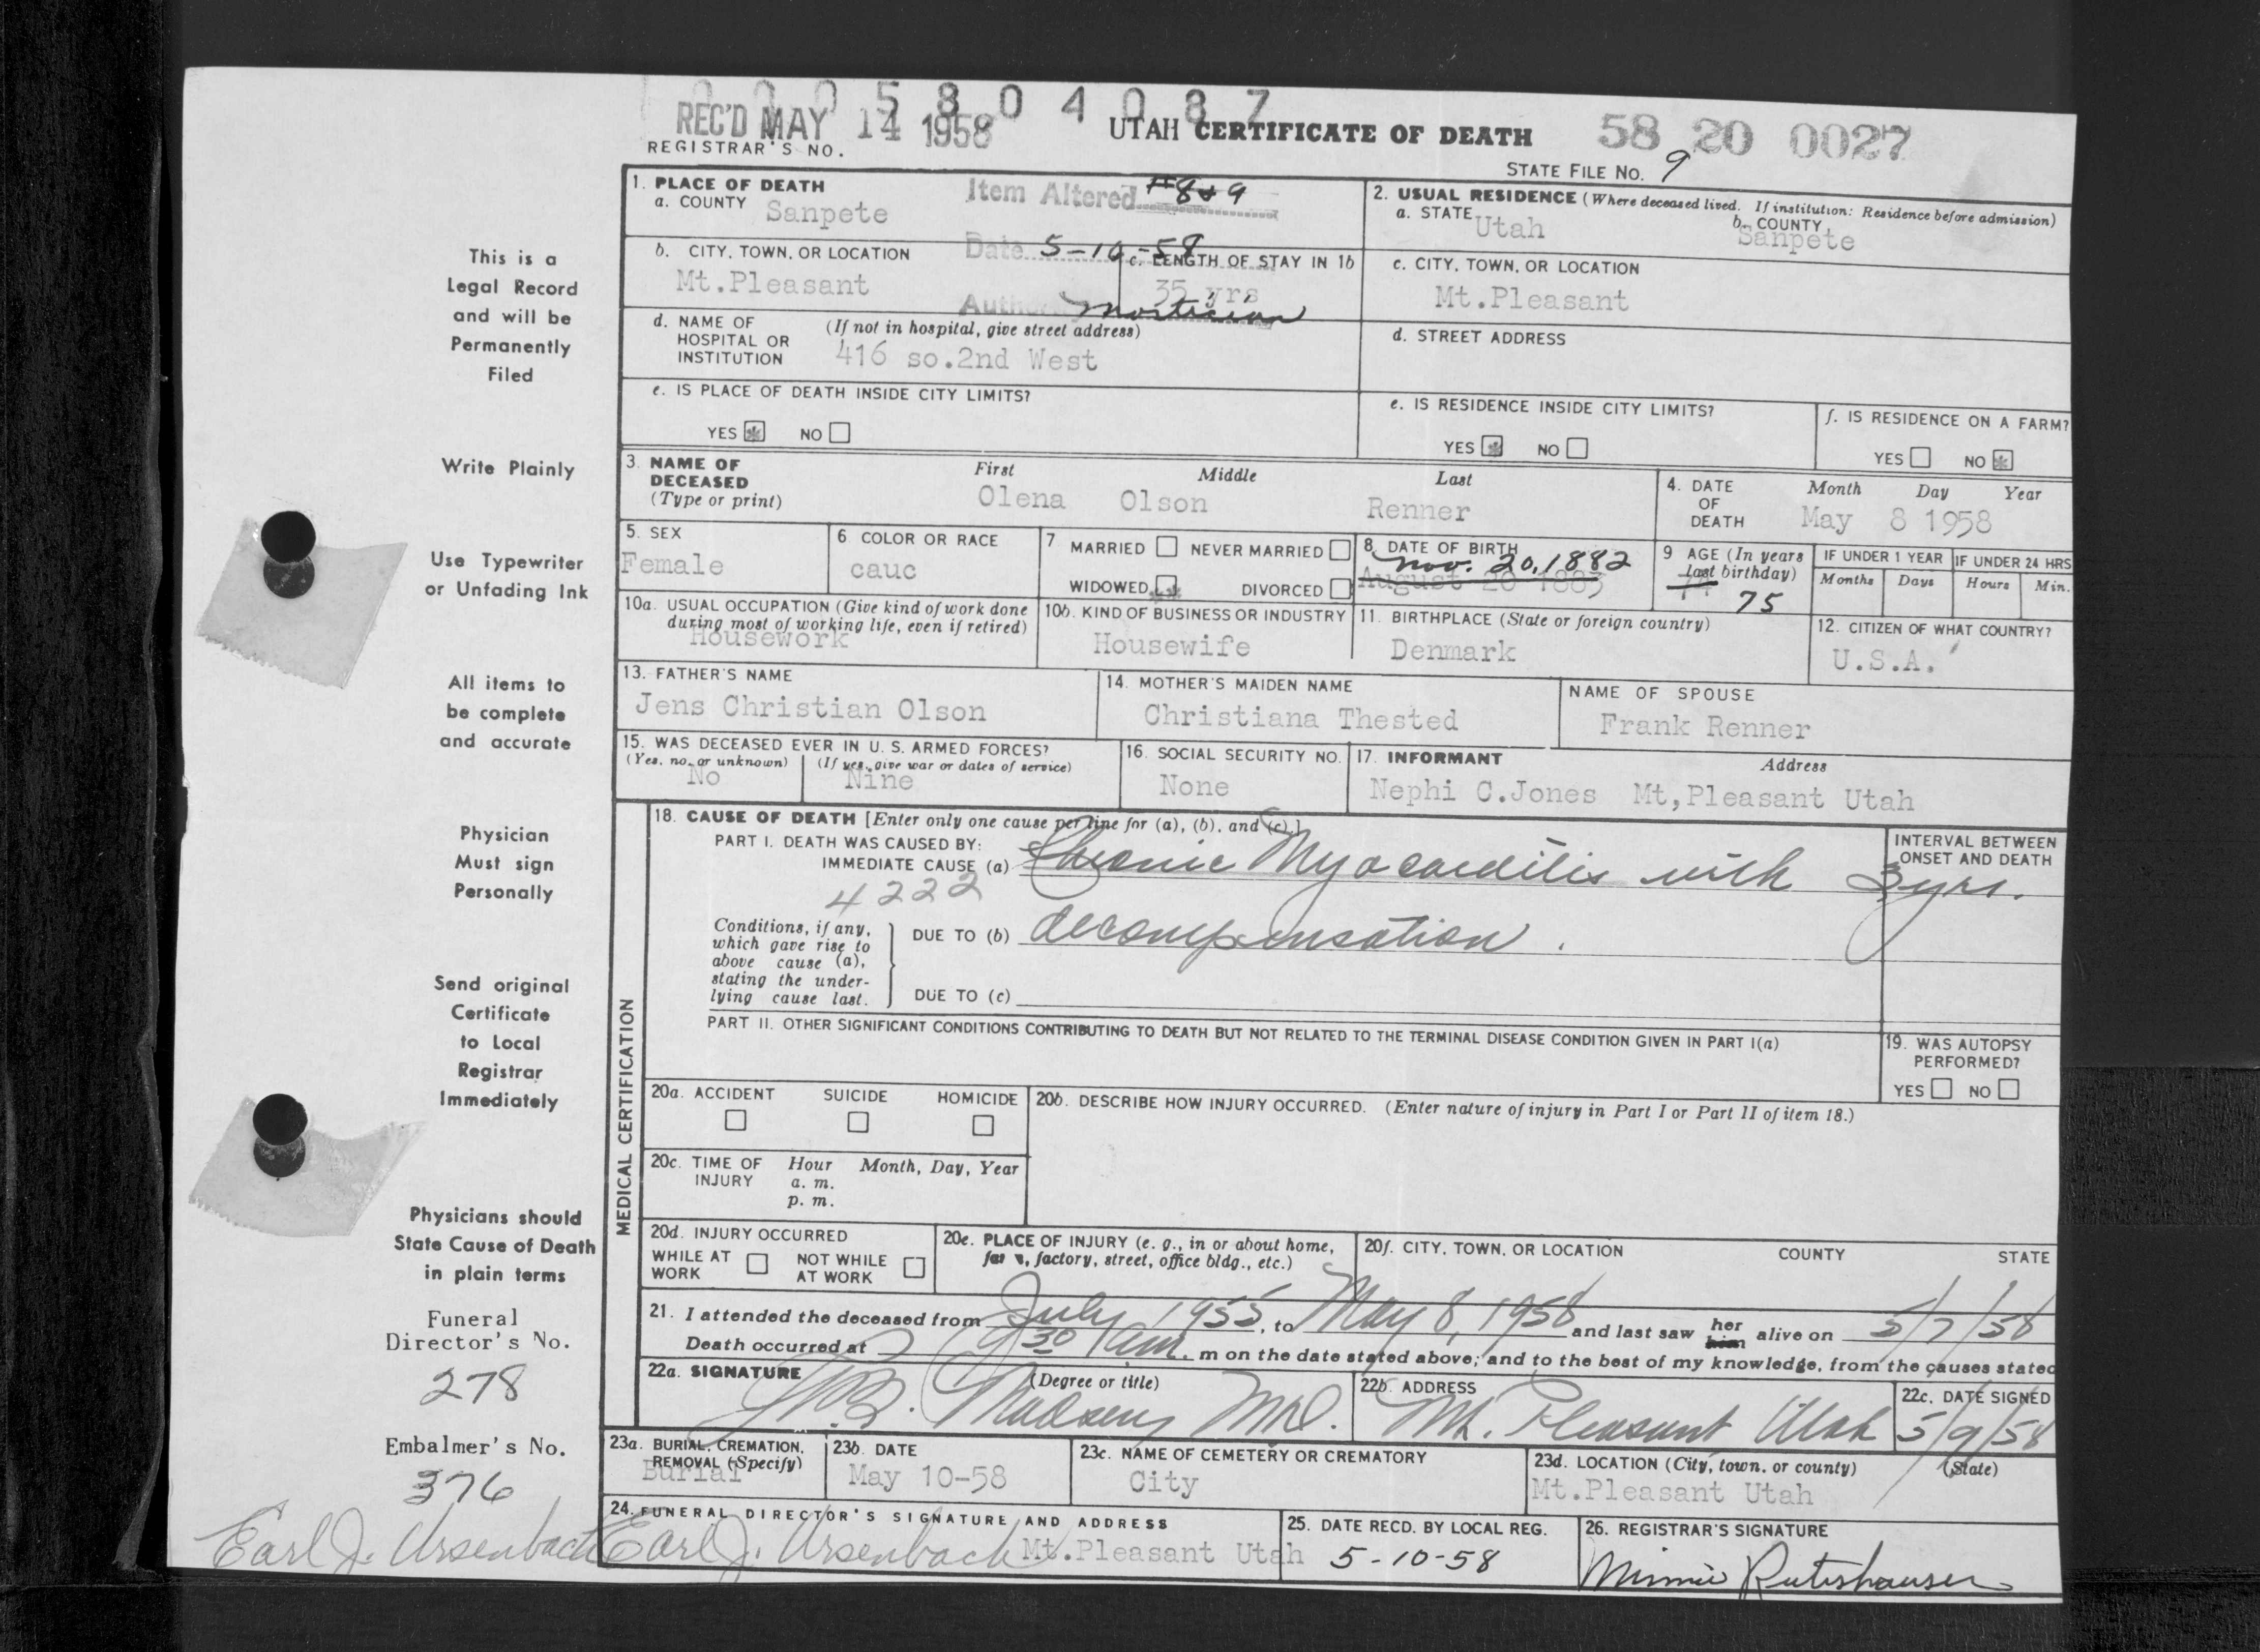 0 0 0 5 8 0 4 0 8 7
REC'D MAY 14 1958
UTAH CERTIFICATE OF DEATH
58 20 0027
REGISTRAR'S NO.
STATE FILE NO. 9
1. PLACE OF DEATH
a. COUNTY Sanpete
Item Altered #8 & 9
2. USUAL RESIDENCE (Where deceased lived. If institution: Residence before admission)
a. STATE Utah
b. COUNTY Sanpete
b. CITY, TOWN, OR LOCATION
Mt.Pleasant
Date 5-10-58
c. LENGTH OF STAY IN 1b
35 yrs
Mortician
c. CITY, TOWN, OR LOCATION
Mt.Pleasant
d. NAME OF HOSPITAL OR INSTITUTION
(If not in hospital, give street address)
416 so.2nd West
d. STREET ADDRESS
e. IS PLACE OF DEATH INSIDE CITY LIMITS?
YES NO
e. IS RESIDENCE INSIDE CITY LIMITS?
YES NO
f. IS RESIDENCE ON A FARM?
YES NO
3. NAME OF DECEASED
(Type or print)
First Middle Last
Olena Olson Renner
4. DATE OF DEATH
Month Day Year
May 8 1958
5. SEX
Female
6 COLOR OR RACE
cauc
7 MARRIED NEVER MARRIED
WIDOWED DIVORCED
8 DATE OF BIRTH
Nov. 20, 1882
August 20 1883
9 AGE (In years last birthday)
75
IF UNDER 1 YEAR
Months Days
IF UNDER 24 HRS
Hours Min.
10a. USUAL OCCUPATION (Give kind of work done during most of working life, even if retired)
Housework
10b. KIND OF BUSINESS OR INDUSTRY
Housewife
11. BIRTHPLACE (State or foreign country)
Denmark
12. CITIZEN OF WHAT COUNTRY?
U.S.A.
13. FATHER'S NAME
Jens Christian Olson
14. MOTHER'S MAIDEN NAME
Christiana Thested
NAME OF SPOUSE
Frank Renner
15. WAS DECEASED EVER IN U. S. ARMED FORCES?
(Yes, no, or unknown) (If yes, give war or dates of service)
No Nine
16. SOCIAL SECURITY NO.
None
17. INFORMANT Address
Nephi C.Jones Mt,Pleasant Utah
MEDICAL CERTIFICATION
18. CAUSE OF DEATH [Enter only one cause per line for (a), (b), and (c).]
PART I. DEATH WAS CAUSED BY:
IMMEDIATE CAUSE (a) Chronic Myocarditis with
4222
INTERVAL BETWEEN ONSET AND DEATH
3 yrs.
Conditions, if any, which gave rise to above cause (a), stating the underlying cause last.
DUE TO (b) decompensation.
DUE TO (c)
PART II. OTHER SIGNIFICANT CONDITIONS CONTRIBUTING TO DEATH BUT NOT RELATED TO THE TERMINAL DISEASE CONDITION GIVEN IN PART I(a)
19. WAS AUTOPSY PERFORMED?
YES NO
20a. ACCIDENT SUICIDE HOMICIDE
20b. DESCRIBE HOW INJURY OCCURRED. (Enter nature of injury in Part I or Part II of item 18.)
20c. TIME OF INJURY
Hour Month, Day, Year
a. m.
p. m.
20d. INJURY OCCURRED
WHILE AT WORK NOT WHILE AT WORK
20e. PLACE OF INJURY (e. g., in or about home, farm, factory, street, office bldg., etc.)
20f. CITY, TOWN, OR LOCATION COUNTY STATE
21. I attended the deceased from July 1955, to May 8, 1958 and last saw her him alive on 5/7/58
Death occurred at 9 30 am. m on the date stated above; and to the best of my knowledge, from the causes stated
22a. SIGNATURE (Degree or title)
Madsen M.D.
22b. ADDRESS
Mt. Pleasant Utah
22c. DATE SIGNED
5/9/58
23a. BURIAL, CREMATION, REMOVAL (Specify)
Burial
23b. DATE
May 10-58
23c. NAME OF CEMETERY OR CREMATORY
City
23d. LOCATION (City, town, or county) (State)
Mt.Pleasant Utah
24. FUNERAL DIRECTOR'S SIGNATURE AND ADDRESS
Earl J. Ursenbach Mt.Pleasant Utah
25. DATE RECD. BY LOCAL REG.
5-10-58
26. REGISTRAR'S SIGNATURE
Minnie Rutishauser
This is a
Legal Record
and will be
Permanently
Filed
Write Plainly
Use Typewriter
or Unfading Ink
All items to
be complete
and accurate
Physician
Must sign
Personally
Send original
Certificate
to Local
Registrar
Immediately
Physicians should
State Cause of Death
in plain terms
Funeral
Director's No.
278
Embalmer's No.
376
Earl J. Ursenbach